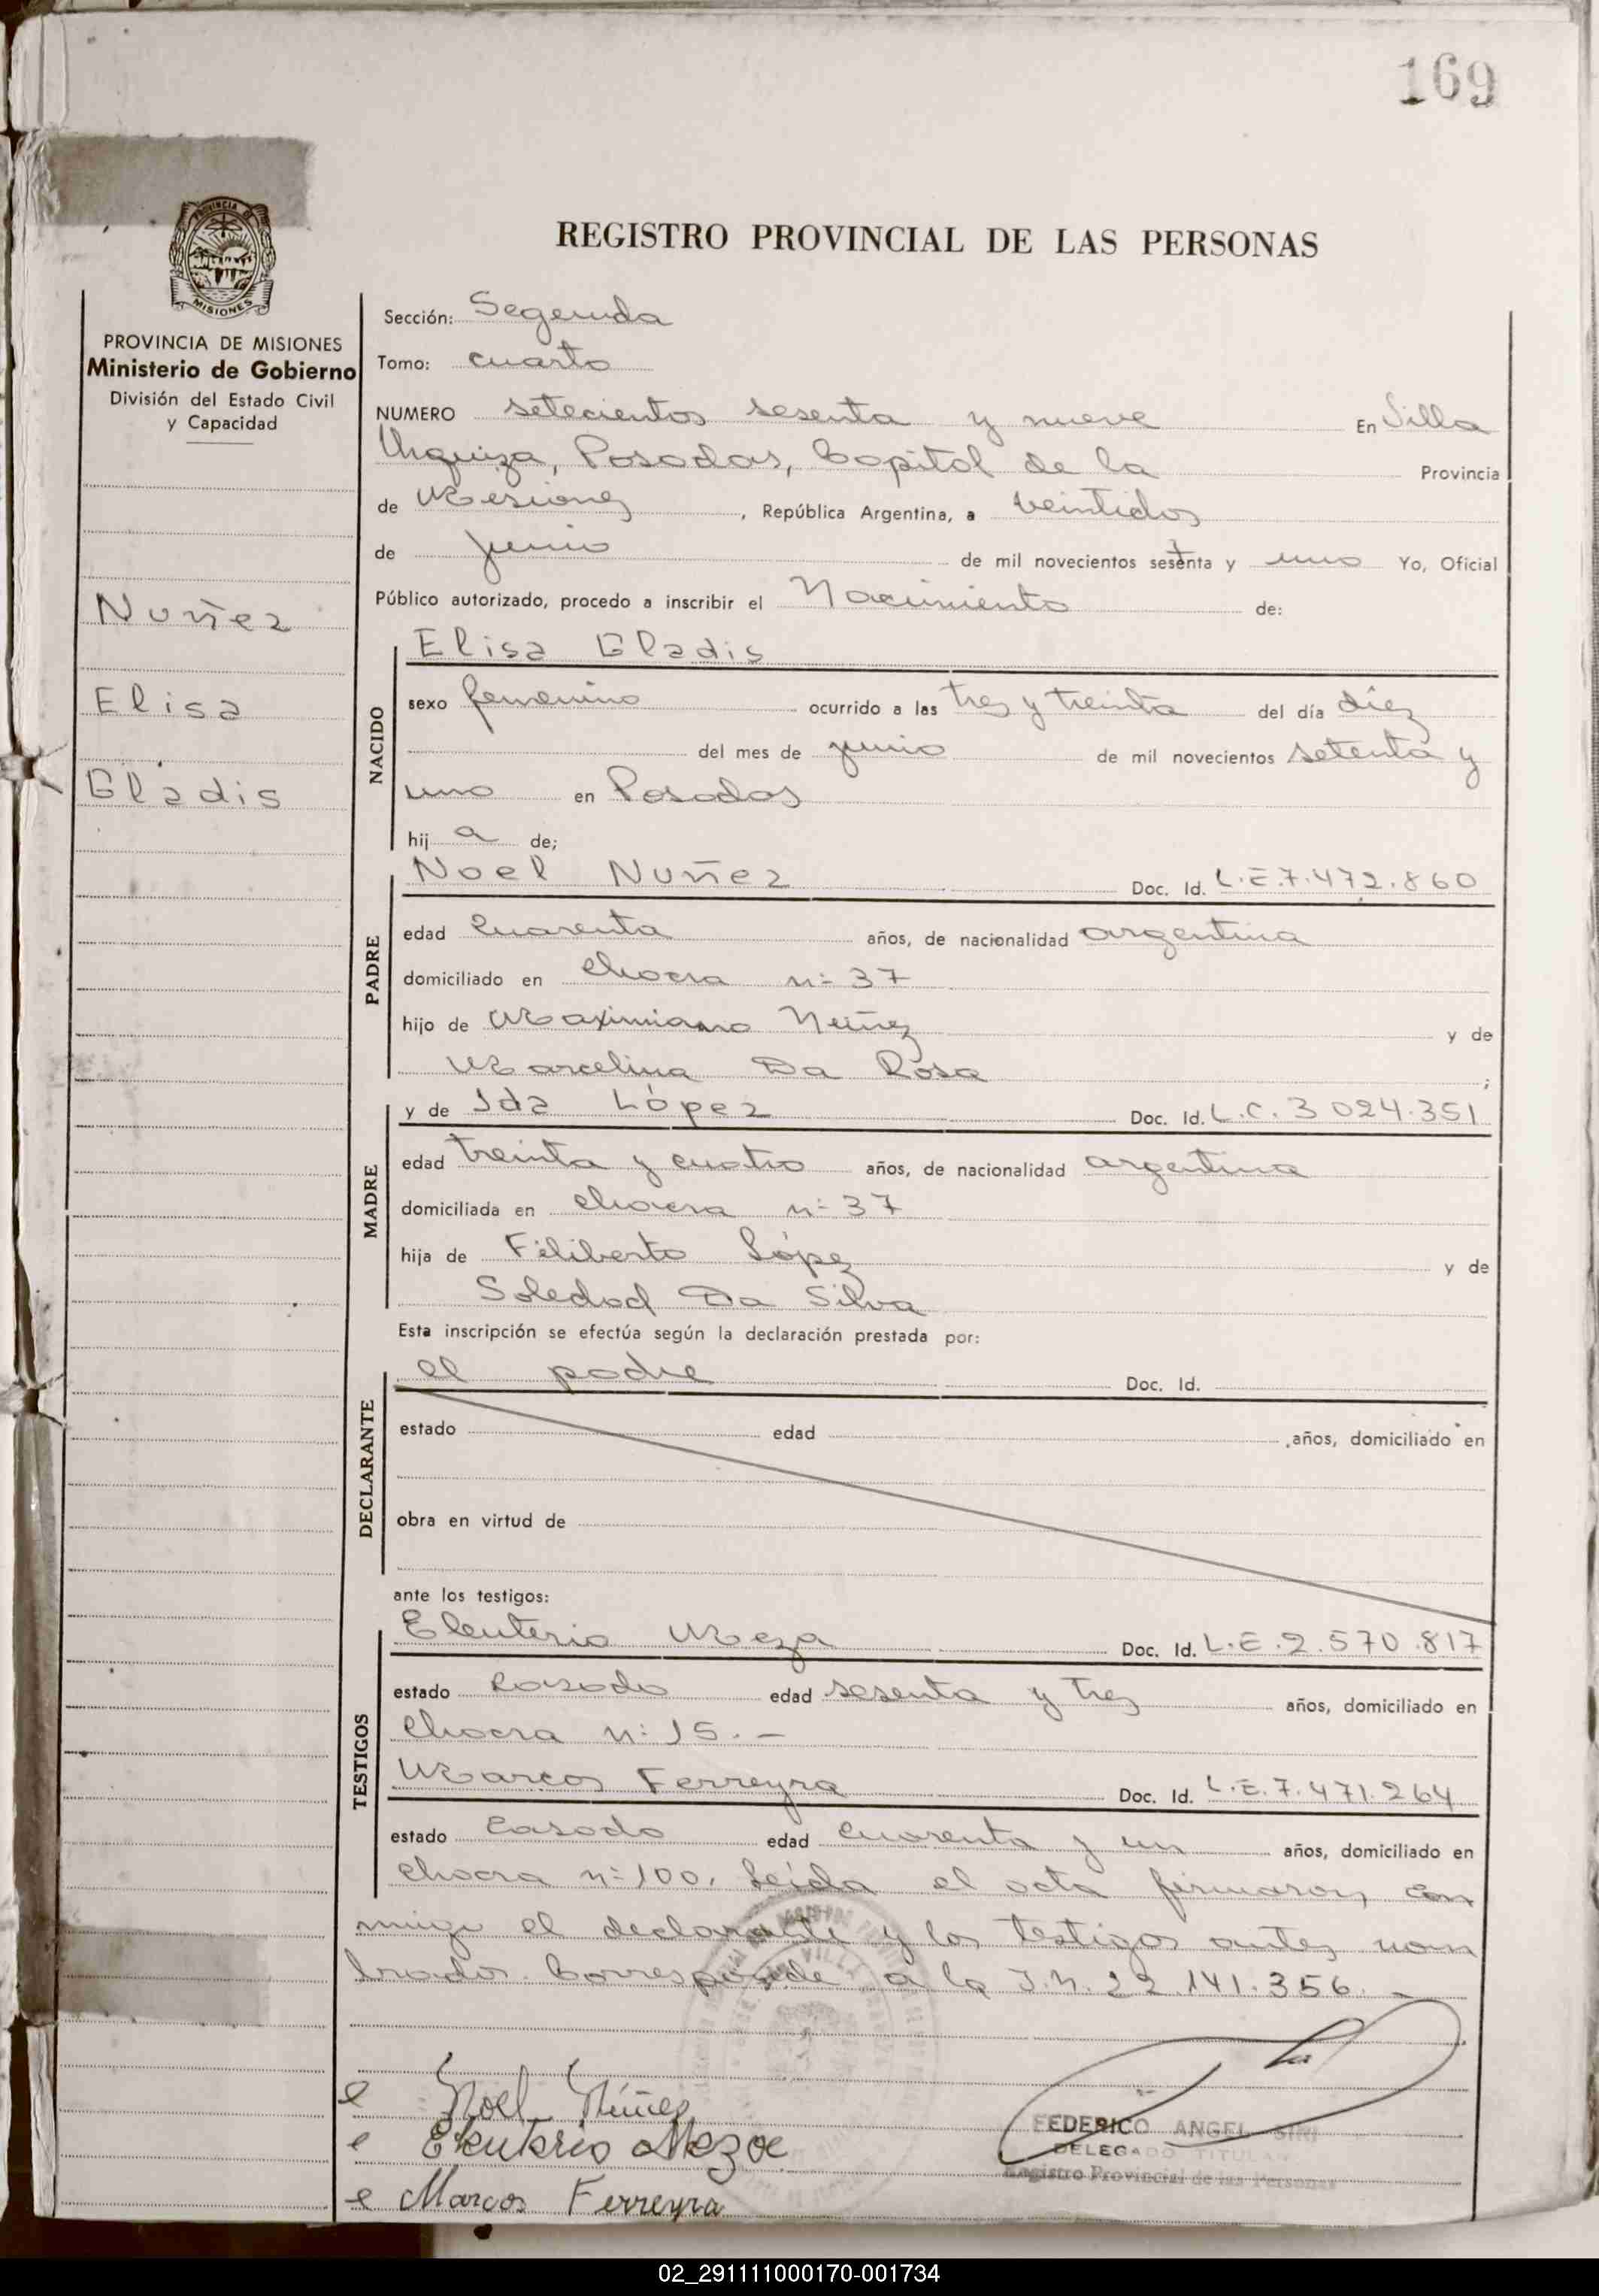 169
PROVINCIA DE
MISIONES
PROVINCIA DE MISIONES
Ministerio de Gobierno
División del Estado Civil
y Capacidad
Nuñez
Elisa
Gladis
REGISTRO PROVINCIAL DE LAS PERSONAS
Sección: Segunda
Tomo: cuarto
NUMERO setecientos sesenta y nueve En Villa
Urquiza, Posadas, Capital de la Provincia
de Misiones, República Argentina, a veintidos
de junio de mil novecientos setenta y uno Yo, Oficial
Público autorizado, procedo a inscribir el Nacimiento de:
NACIDO
Elisa Gladis
sexo femenino ocurrido a las tres y treinta del día diez
del mes de junio de mil novecientos setenta y
uno en Posadas
hij a de;
PADRE
Noel Nuñez Doc. Id. L.E.7.472.860
edad cuarenta años, de nacionalidad argentina
domiciliado en chacra n:37
hijo de Maximiano Núñez y de
Marcelina Da Rosa ;
MADRE
y de Ida López Doc. Id. L.C. 3 024.351
edad treinta y cuatro años, de nacionalidad argentina
domiciliada en chacra n:37
hija de Filiberto López y de
Soledad Da Silva
Esta inscripción se efectúa según la declaración prestada por:
DECLARANTE
el padre Doc. Id.
estado edad años, domiciliado en
obra en virtud de
ante los testigos:
TESTIGOS
Eleuterio Meza Doc. Id. L.E.2.570.817
estado casado edad sesenta y tres años, domiciliado en
chacra n:15.-
Marcos Ferreyra Doc. Id. L.E.7.471.264
estado casado edad cuarenta y un años, domiciliado en
chacra n:100. Leída el acta firmaron, con
migo el declarante y los testigos antes nom
brados. Corresponde a la I.N.22.141.356.-
Noel Núñez
Eleuterio Meza
Marcos Ferreyra
FEDERICO ANGEL SIRI
DELEGADO TITULAR
Registro Provincial de las Personas
02_291111000170-001734